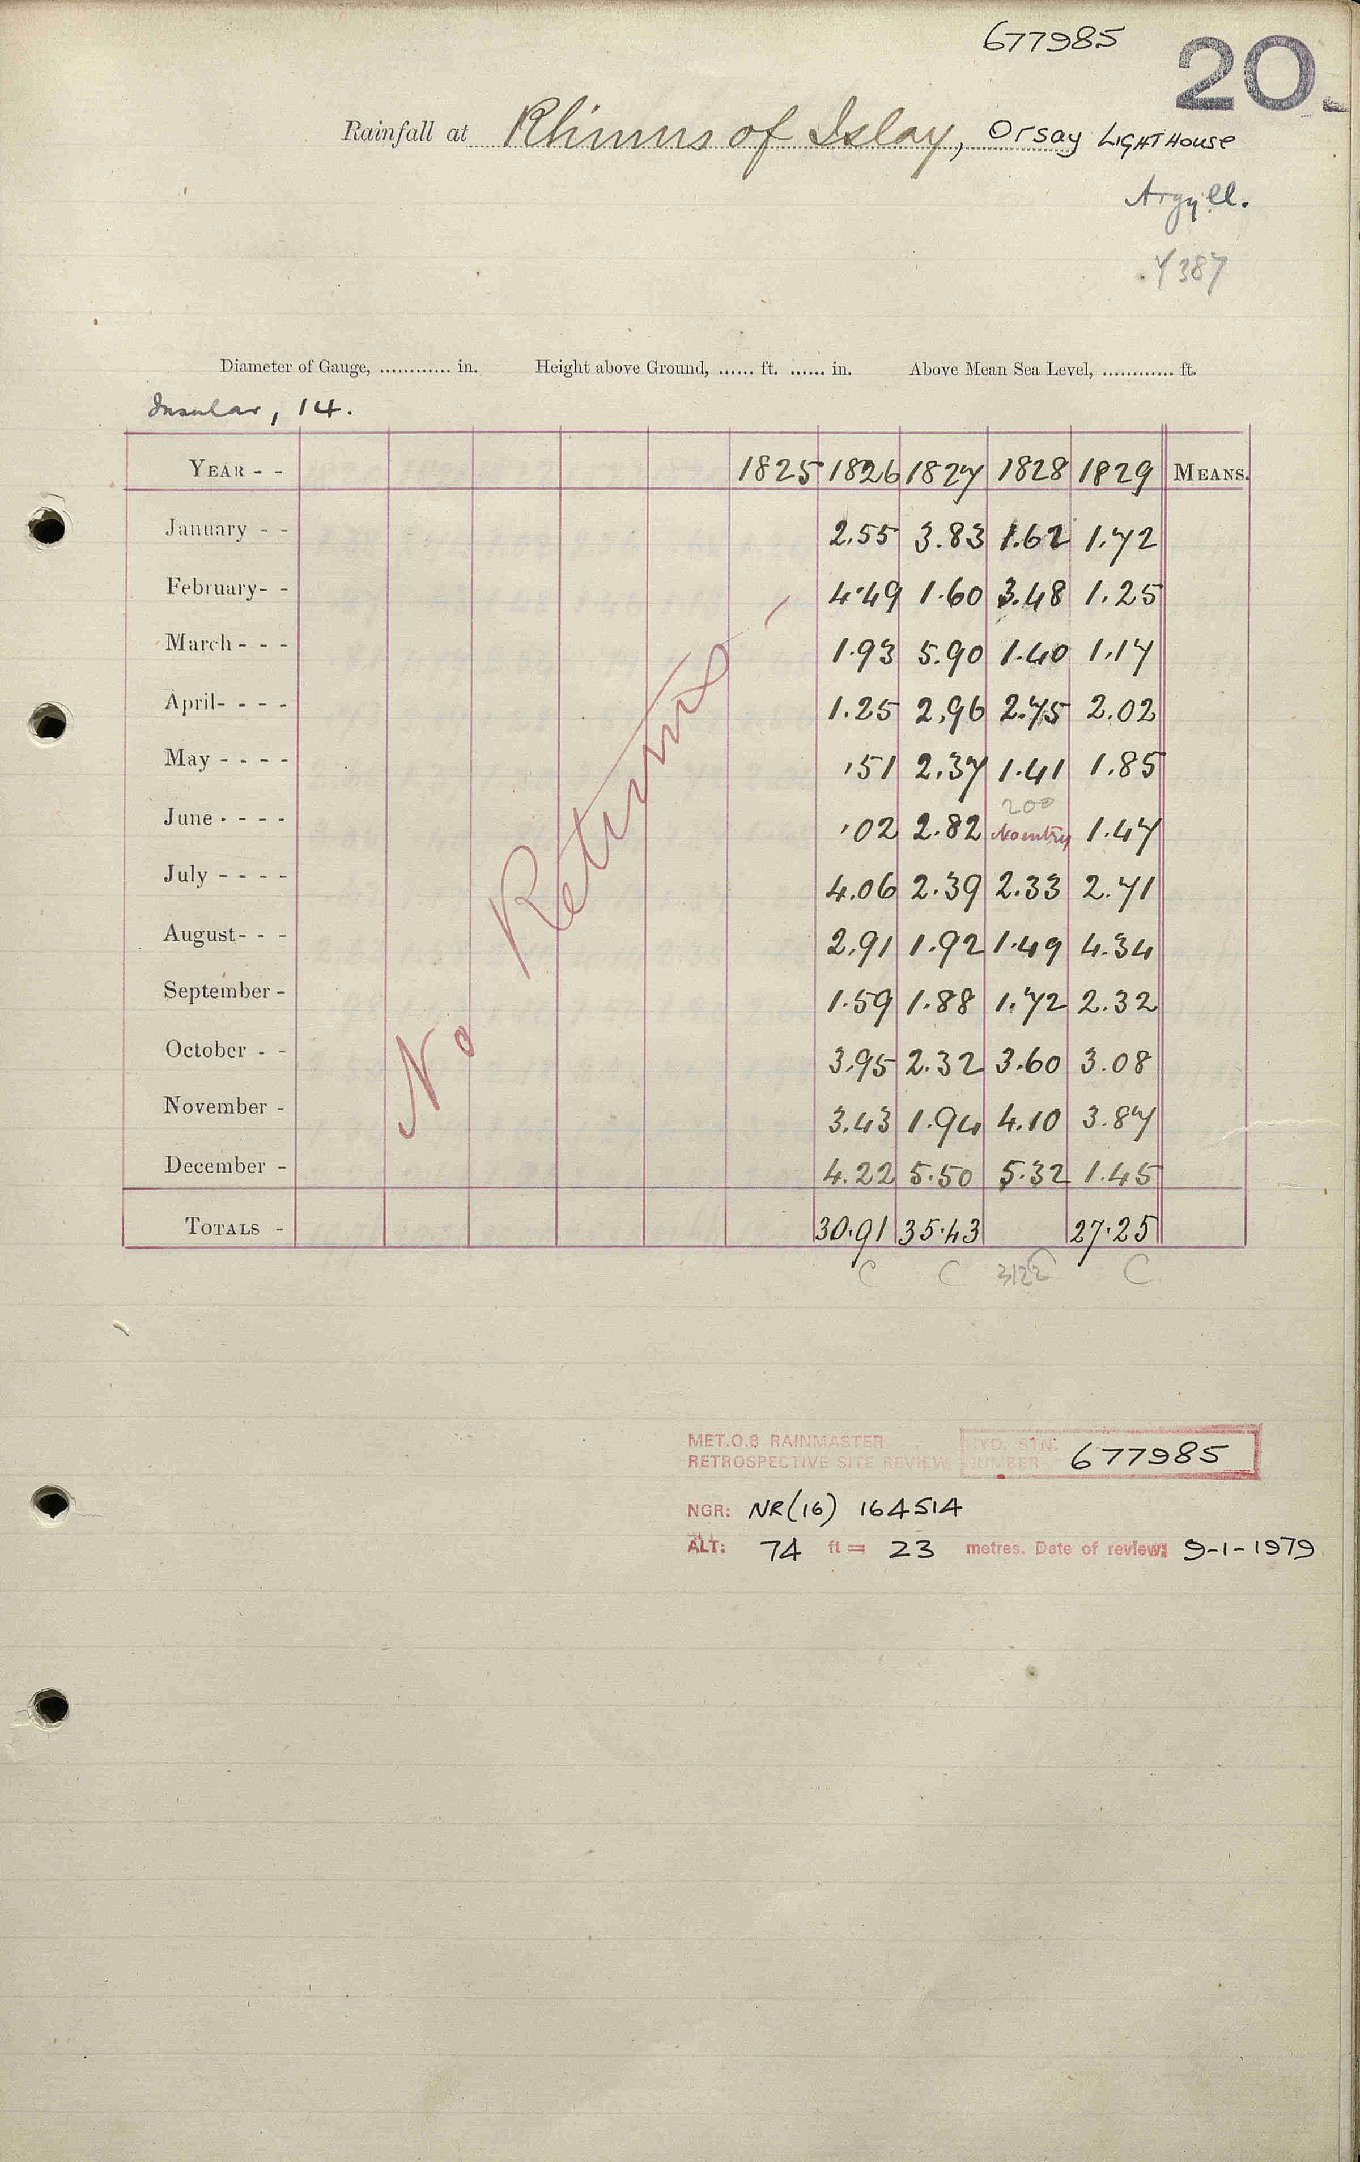 677985
20
Rainfall at Rhinns of Islay, Orsay LIGHTHOUSE
Argyll.
Diameter of Gauge, ............ in. Height above Ground, ...... ft. ...... in. Above Mean Sea Level, ............ ft.
Insular, 14.
YEAR - - 1825 1826 1827 1828 1829 MEANS.
January - - 2.55 3.83 1.62 1.72
February- - 4.49 1.60 3.48 1.25
March - - - 1.93 5.90 1.40 1.17
April- - - - 1.25 2.96 2.75 2.02
May - - - - .51 2.37 1.41 1.85
200
June - - - - .02 2.82 No entry 1.47
July - - - - 4.06 2.39 2.33 2.71
August- - - 2.91 1.92 1.49 4.34
September - 1.59 1.88 1.72 2.32
October - - 3.95 2.32 3.60 3.08
November - 3.43 1.94 4.10 3.87
December - 4.22 5.50 5.32 1.45
No Returns -
TOTALS - 30.91 35.43 27.25
C C 3122 C
MET.O.8 RAINMASTER
RETROSPECTIVE SITE REVIEW HYD. STN. NUMBER 677985
NGR: NR(16) 164514
ALT: 74 ft = 23 metres. Date of review: 9-1-1979